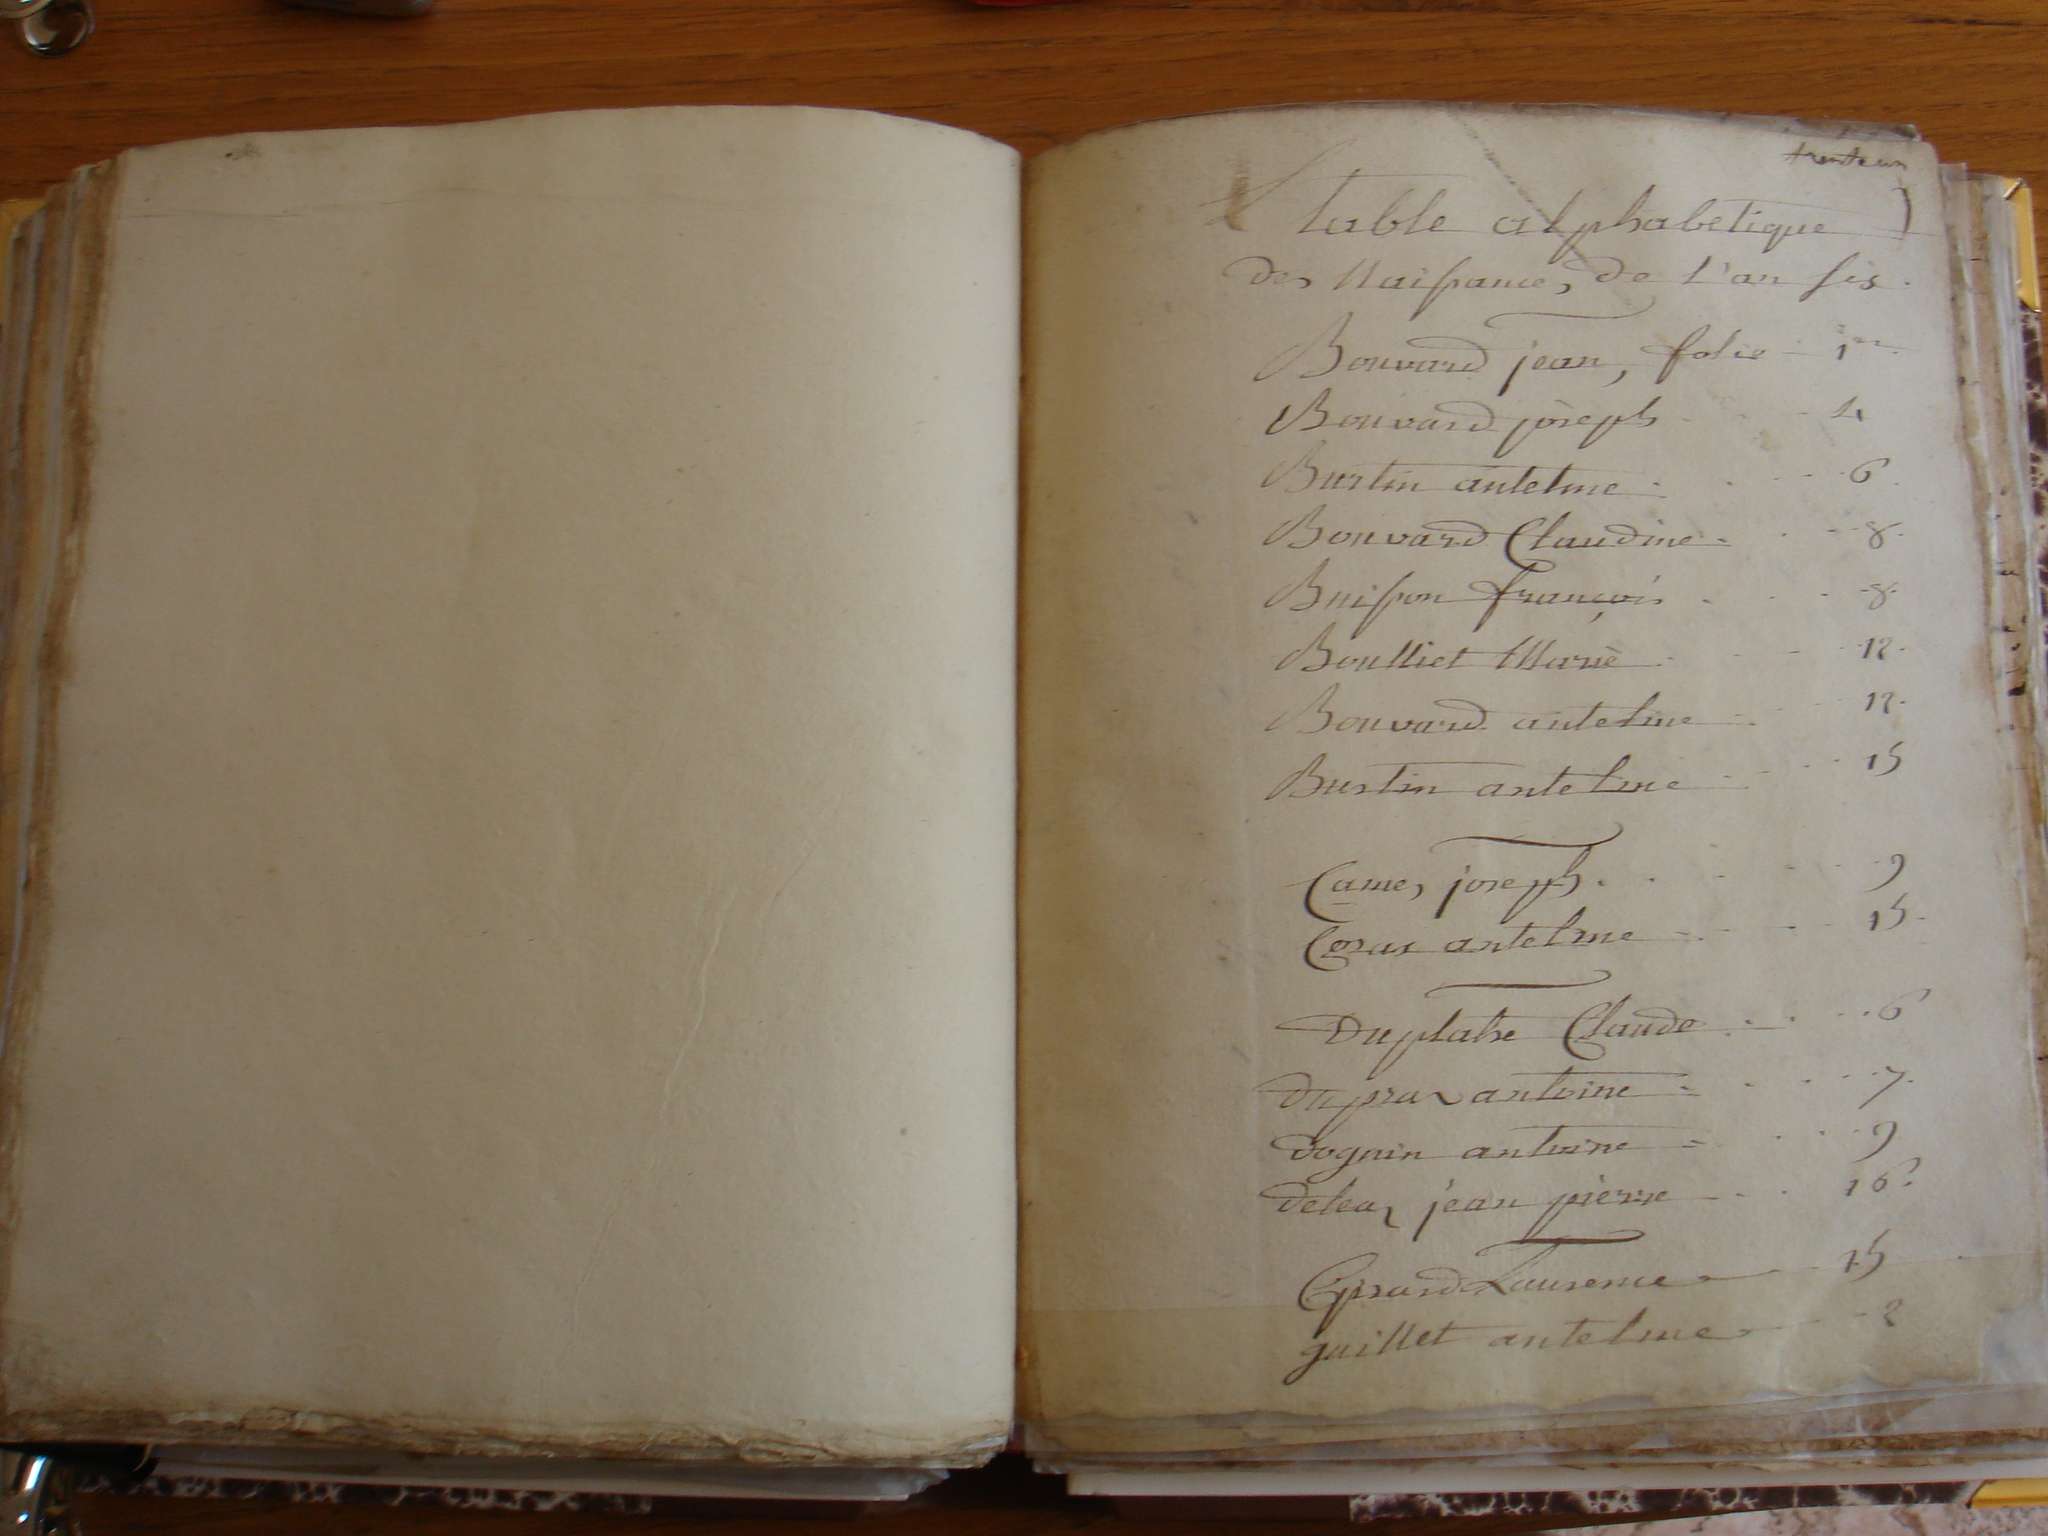 trente un
Table alphabetique
des Naissances de l'an six.
Bouvard jean, folio 1er
Bouvard joseph 4
Burtin antelme 6
Bouvard Claudine 8
Buisson françois 8
Boulliet Marie 12
Bouvard antelme 12
Burtin antelme 15
Cames joseph 9
Coras antelme 15
Duplatre Claude 6
Dupraz antoine 7
Doguin antoine 9
Deleaz jean pierre 16
Girard Laurence 15
guillet antelme 2